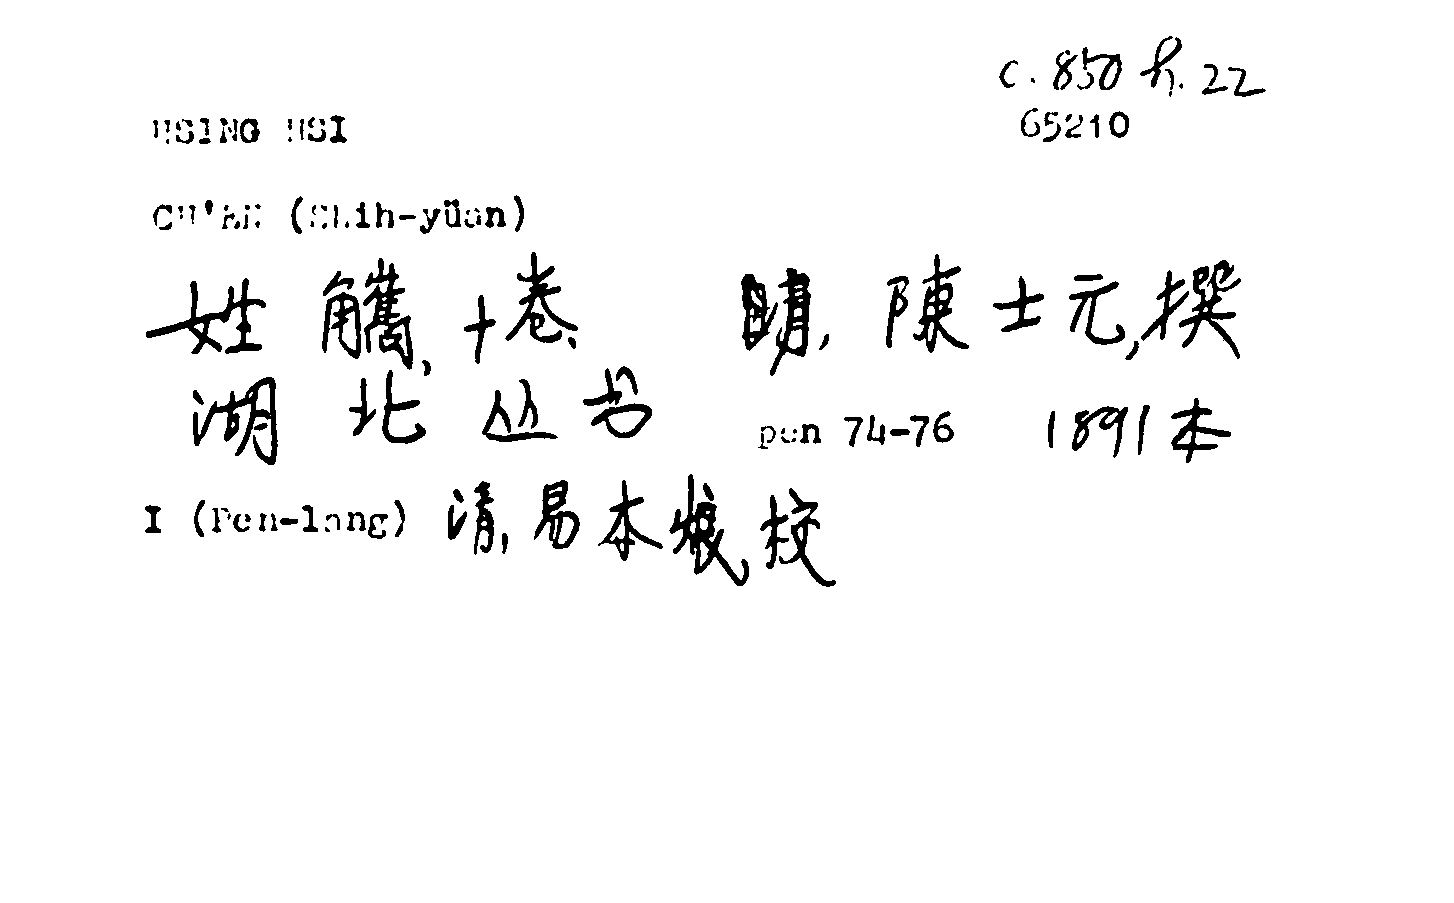 C.850 h.22
65210
HSING HSI
CH'EN (Shih-yüan)
姓觿,十卷、 明,陳士元,撰
湖北丛书 pen 74-76 1891本
I (Pen-lang) 清,易本烺,校